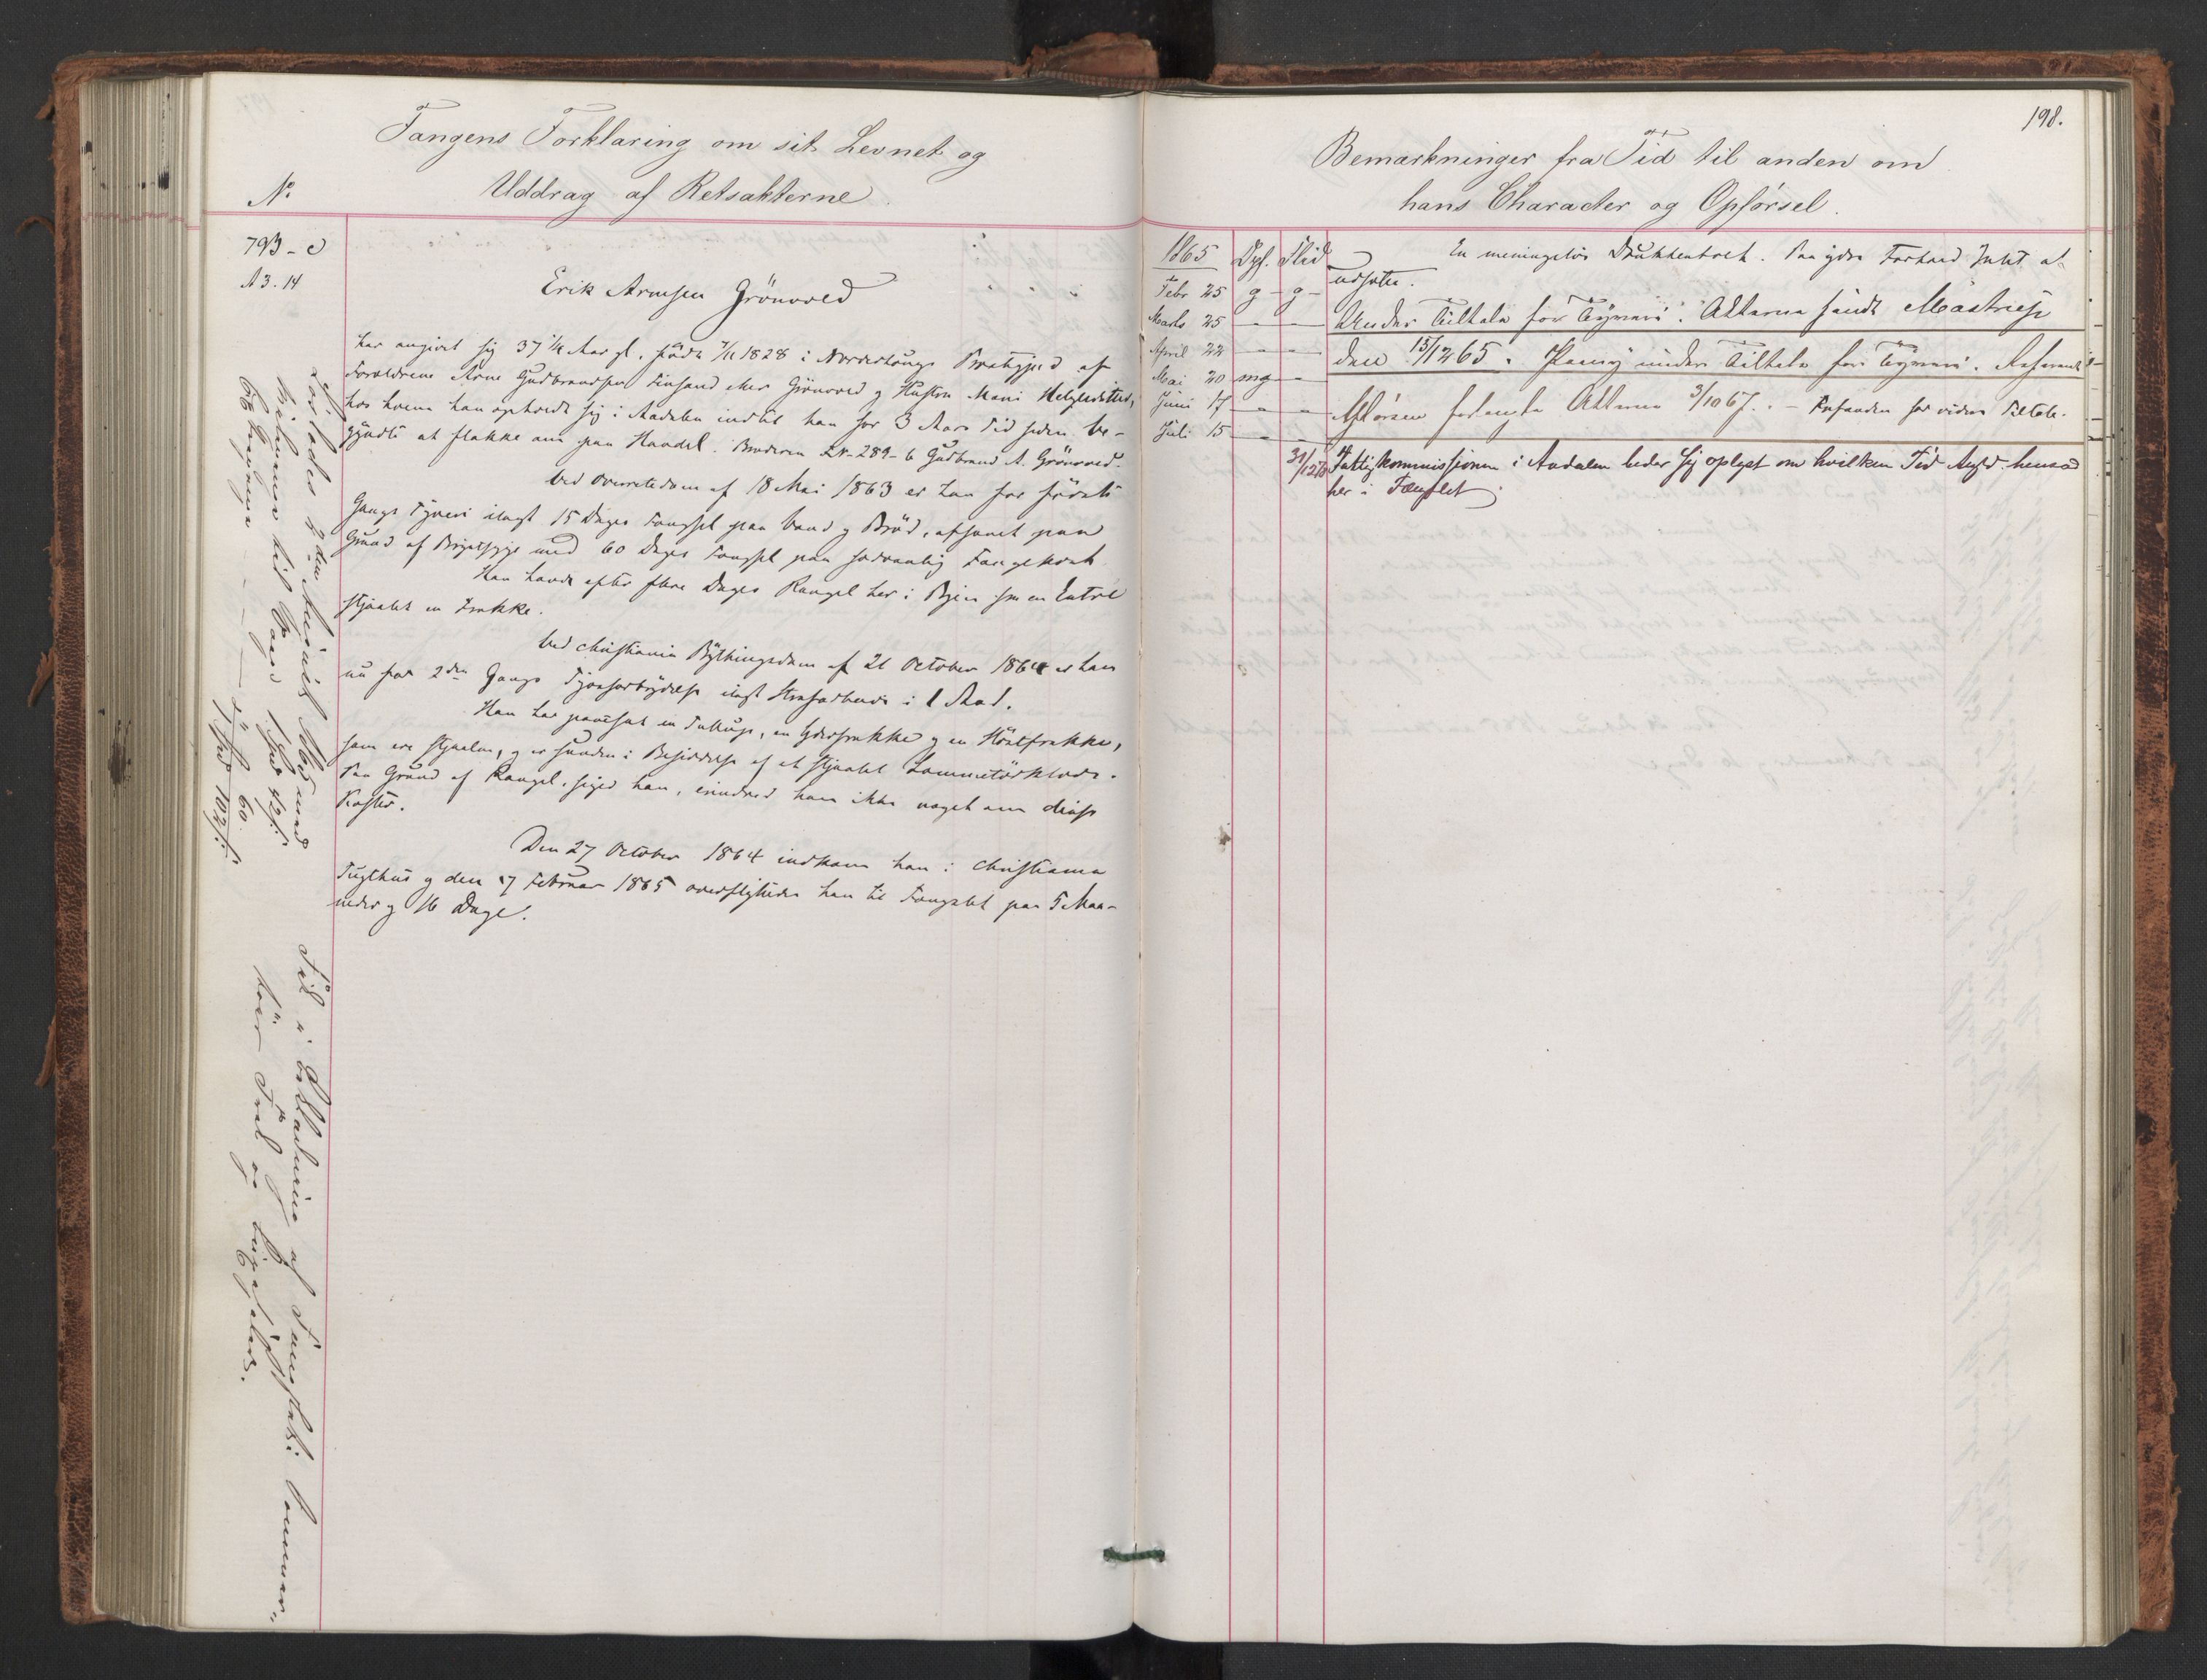 Fangens Forklaring om sit Levnet og
Uddrag af Retsakterne.
No
793 - c
A 3. 14
Erik Arnesen Grönvold
har angivet sig 37 1/4 Aar gl. född 7/11 1828 i Norderhougs Præstegjeld af
Forældrene Arne Gudbrandsen Finsand eller Grönvold og Hustru Mari Helgesdatter,
hos hvem han opholdt sig i Aadalen indtil han for 3 Aars Tid siden be-
gyndte at flakke om paa Handel. Broderen Lr. 289 - b Gudbrand A. Grönvold.
Ved Overretsdom af 18 Mai 1863 er han for förste
Gangs Tyveri ilagt 15 Dages Fængsel paa Vand og Bröd, afsonet paa
Grund af Brystsyge med 60 Dages Fængsel paa sædvanlig Fangekost.
Han havde efter flere Dages Rangel her i Byen fra en Entré
stjaalet en Frakke.
Ved Christiania Bythingsdom af 21 October 1864 er han
nu for 2den Gangs Tyvsforbrydelse ilagt Strafarbeide i 1 Aar.
Han har pantsat en en Yderfrakke og en Höstfrakke,
som ere stjaalne, og er funden i Besiddelse af et stjaalet Lommetörklæde.
Paa Grund af Rangel, siger han, erindrer han ikke noget om disse
Koster.
Den 27 October 1864 indkom han i Christiania
Tugthus og den 17 Februar 1865 overflyttedes han til Fængslet paa 5 Maa-
neder og 16 Dage.
Löslades 2den August 1865 med
til 1 Spd 42 s:
60.
1 Spd 102 s:
Til i af Fængslets
198.
Bemærkninger fra Tid til anden om
hans Character og Opförsel.
1865 Opf. Flid
Febr 25 g - g -
Marts 25 - -
April 22 - -
Mai 20 mg -
Juni 17 - -
Juli 15 - -
En meningslös Drukkenbolt. Paa ydre Forhold Intet at
udsætte.
Under Tiltale for Tyveri. Akterne sendt
den 15/12 65. Paany under Tiltale for Tyveri.
Akterne 3/10 67. - for videre Tiltale.
31/12 Fattigkommissionen i Aadalen beder sig oplyst om hvilken Tid hensad
her i Fængslet